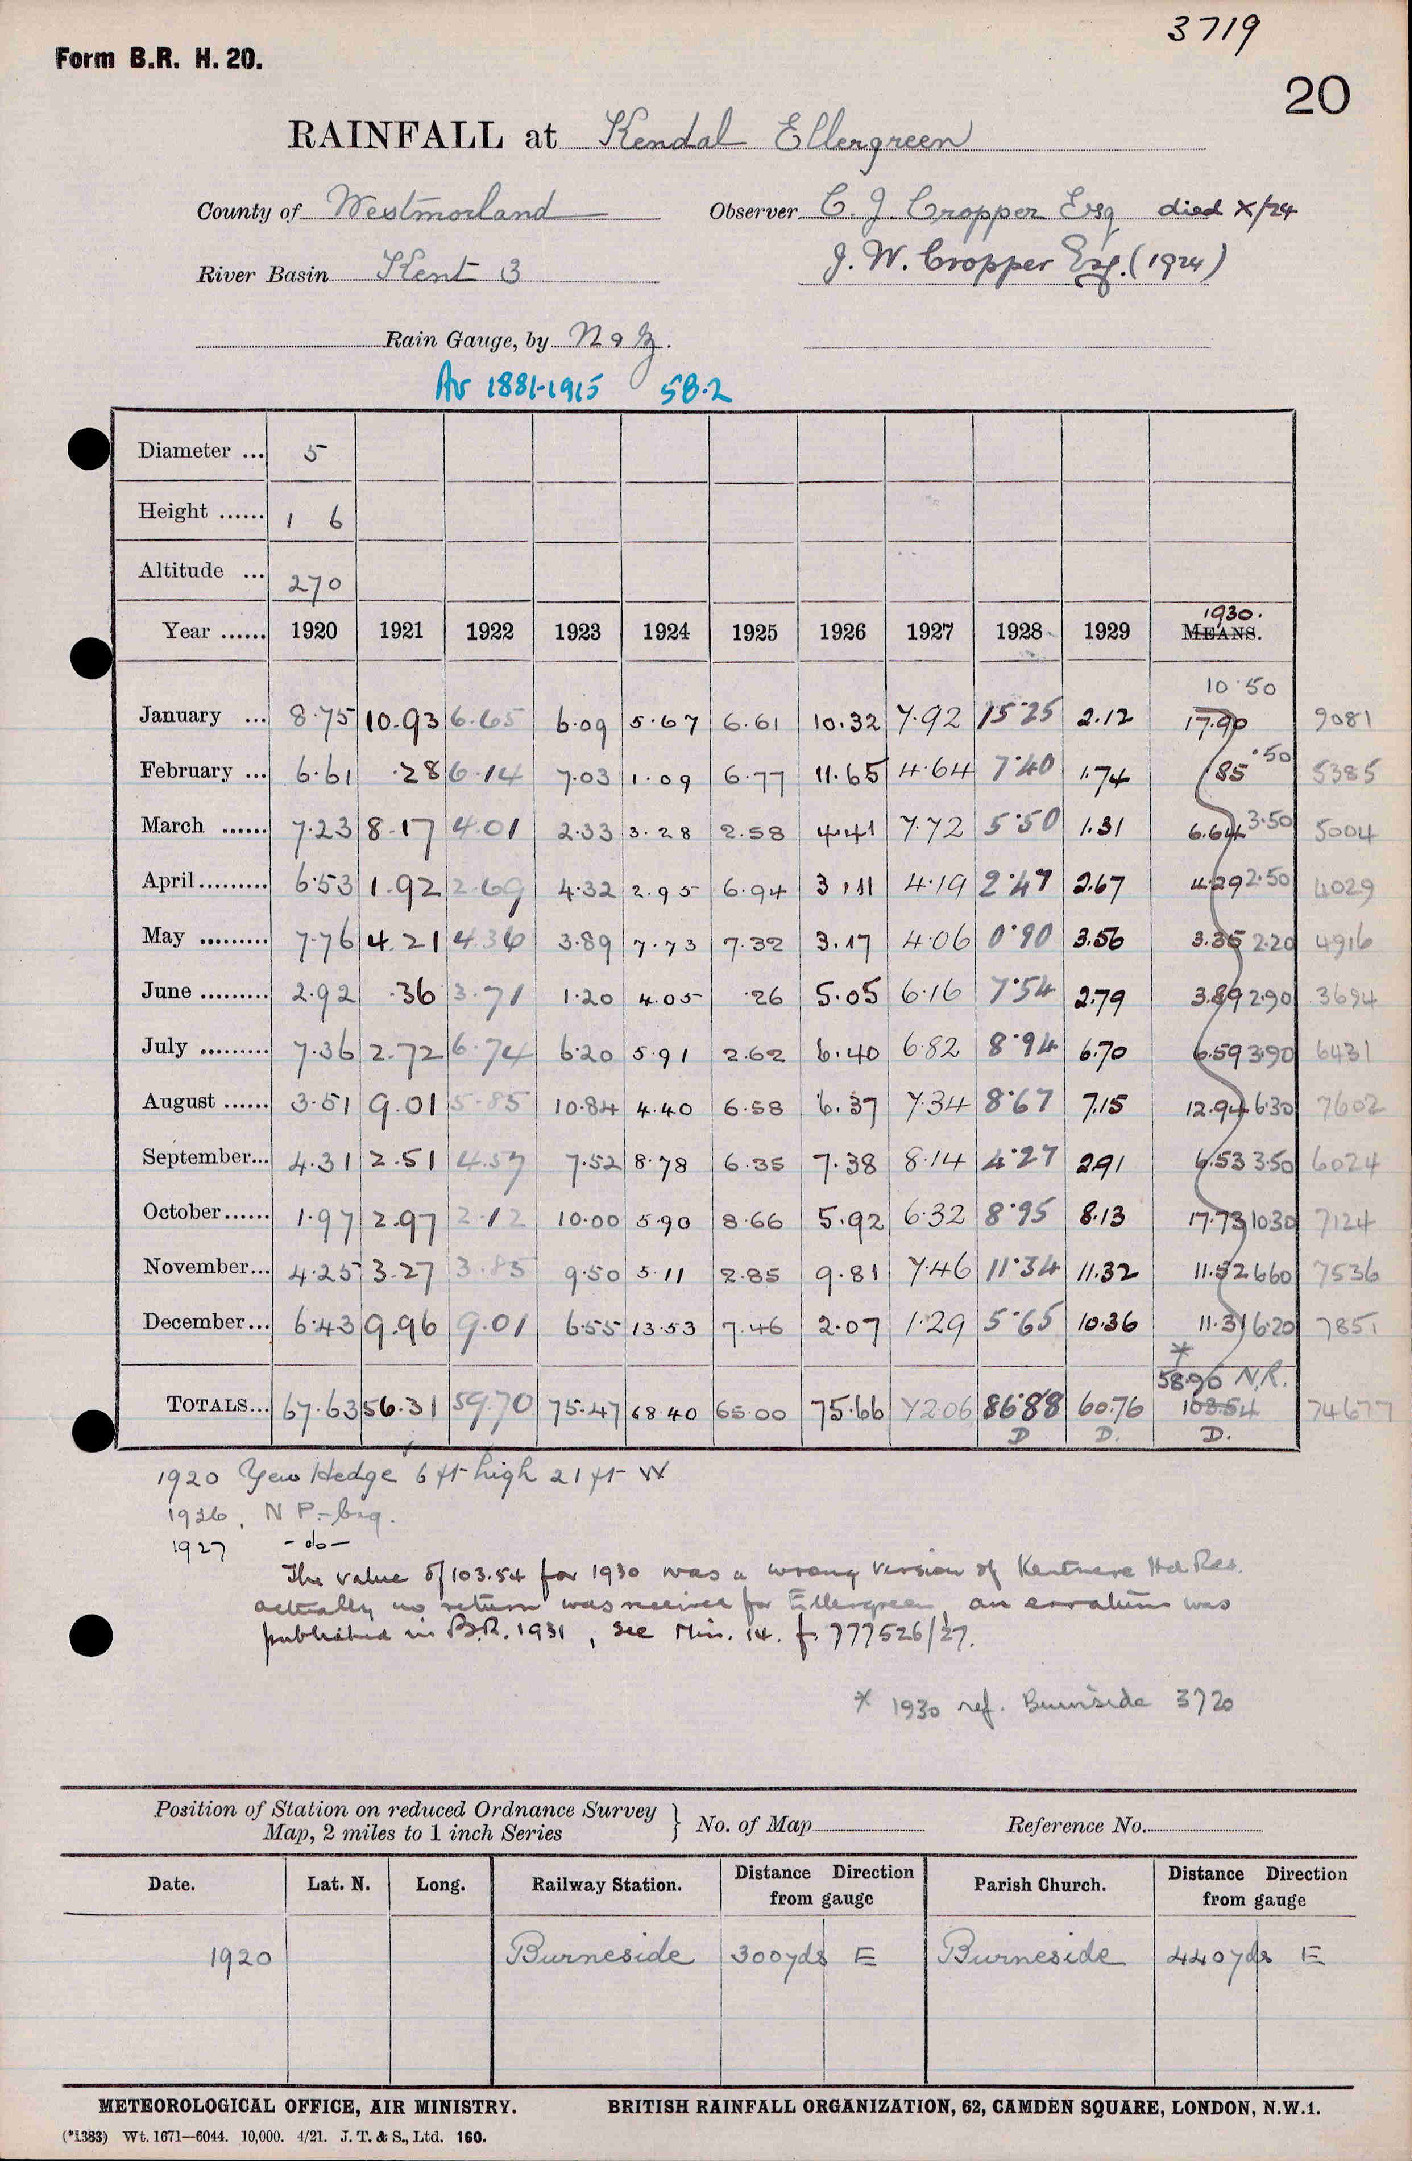 3719
Form B.R. H. 20.
20
RAINFALL at Kendal Ellergreen
County of Westmorland Observer C. J. Cropper Esq died X/24
River Basin Kent 3 J. W. Cropper Esq. (1924)
Rain Gauge, by N & Z.
Av 1881-1915 58.2
Diameter ... 5
Height ...... 1 6
Altitude ... 270
1930.
Year ...... 1920 1921 1922 1923 1924 1925 1926 1927 1928 1929 MEANS.
10.50
January ... 8.75 10.93 6.65 6.09 5.67 6.61 10.32 7.92 15.25 2.12 17.90 9081
February ... 6.61 .28 6.14 7.03 1.09 6.77 11.65 4.64 7.40 1.74 .85 .50 5385
March ...... 7.23 8.17 4.01 2.33 3.28 2.58 4.41 7.72 5.50 1.31 6.64 3.50 5004
April ......... 6.53 1.92 2.69 4.32 2.95 6.94 3.11 4.19 2.47 2.67 4.29 2.50 4029
May ......... 7.76 4.21 4.36 3.89 7.73 7.32 3.17 4.06 0.90 3.56 3.35 2.20 4916
June ......... 2.92 .36 3.71 1.20 4.05 .26 5.05 6.16 7.54 2.79 3.89 2.90 3694
July ......... 7.36 2.72 6.74 6.20 5.91 2.62 6.40 6.82 8.94 6.70 6.59 3.90 6431
August ...... 3.51 9.01 5.85 10.84 4.40 6.58 6.37 7.34 8.67 7.15 12.94 6.30 7602
September... 4.31 2.51 4.57 7.52 8.78 6.35 7.38 8.14 4.27 2.91 6.53 3.50 6024
October...... 1.97 2.97 2.12 10.00 5.90 8.66 5.92 6.32 8.95 8.13 17.73 10.30 7124
November... 4.25 3.27 3.85 9.50 5.11 2.85 9.81 7.46 11.34 11.32 11.52 6.60 7536
December... 6.43 9.96 9.01 6.55 13.53 7.46 2.07 1.29 5.65 10.36 11.31 6.20 7851
*
58.90 N.R.
TOTALS... 67.63 56.31 59.70 75.47 68.40 65.00 75.66 72.06 86.88 60.76 103.54 74677
D D. D.
1920 Yew Hedge 6 ft high 21 ft W
1926. N P.-brg.
1927 - do -
The value of 103.54 for 1930 was a wrong version of Kentmere Hd Res.
actually no return was received for Ellergreen, an erratum was
published in B.R. 1931, see Min. 14. f. 777526/27.
* 1930 ref. Burnside 3720
Position of Station on reduced Ordnance Survey
Map, 2 miles to 1 inch Series } No. of Map Reference No.
Date. Lat. N. Long. Railway Station. Distance Direction from gauge Parish Church. Distance Direction from gauge
1920 Burneside 300yds E Burneside 440yds E
METEOROLOGICAL OFFICE, AIR MINISTRY. BRITISH RAINFALL ORGANIZATION, 62, CAMDEN SQUARE, LONDON, N.W.1.
(*1383) Wt. 1671—6044. 10,000. 4/21. J. T. & S., Ltd. 160.